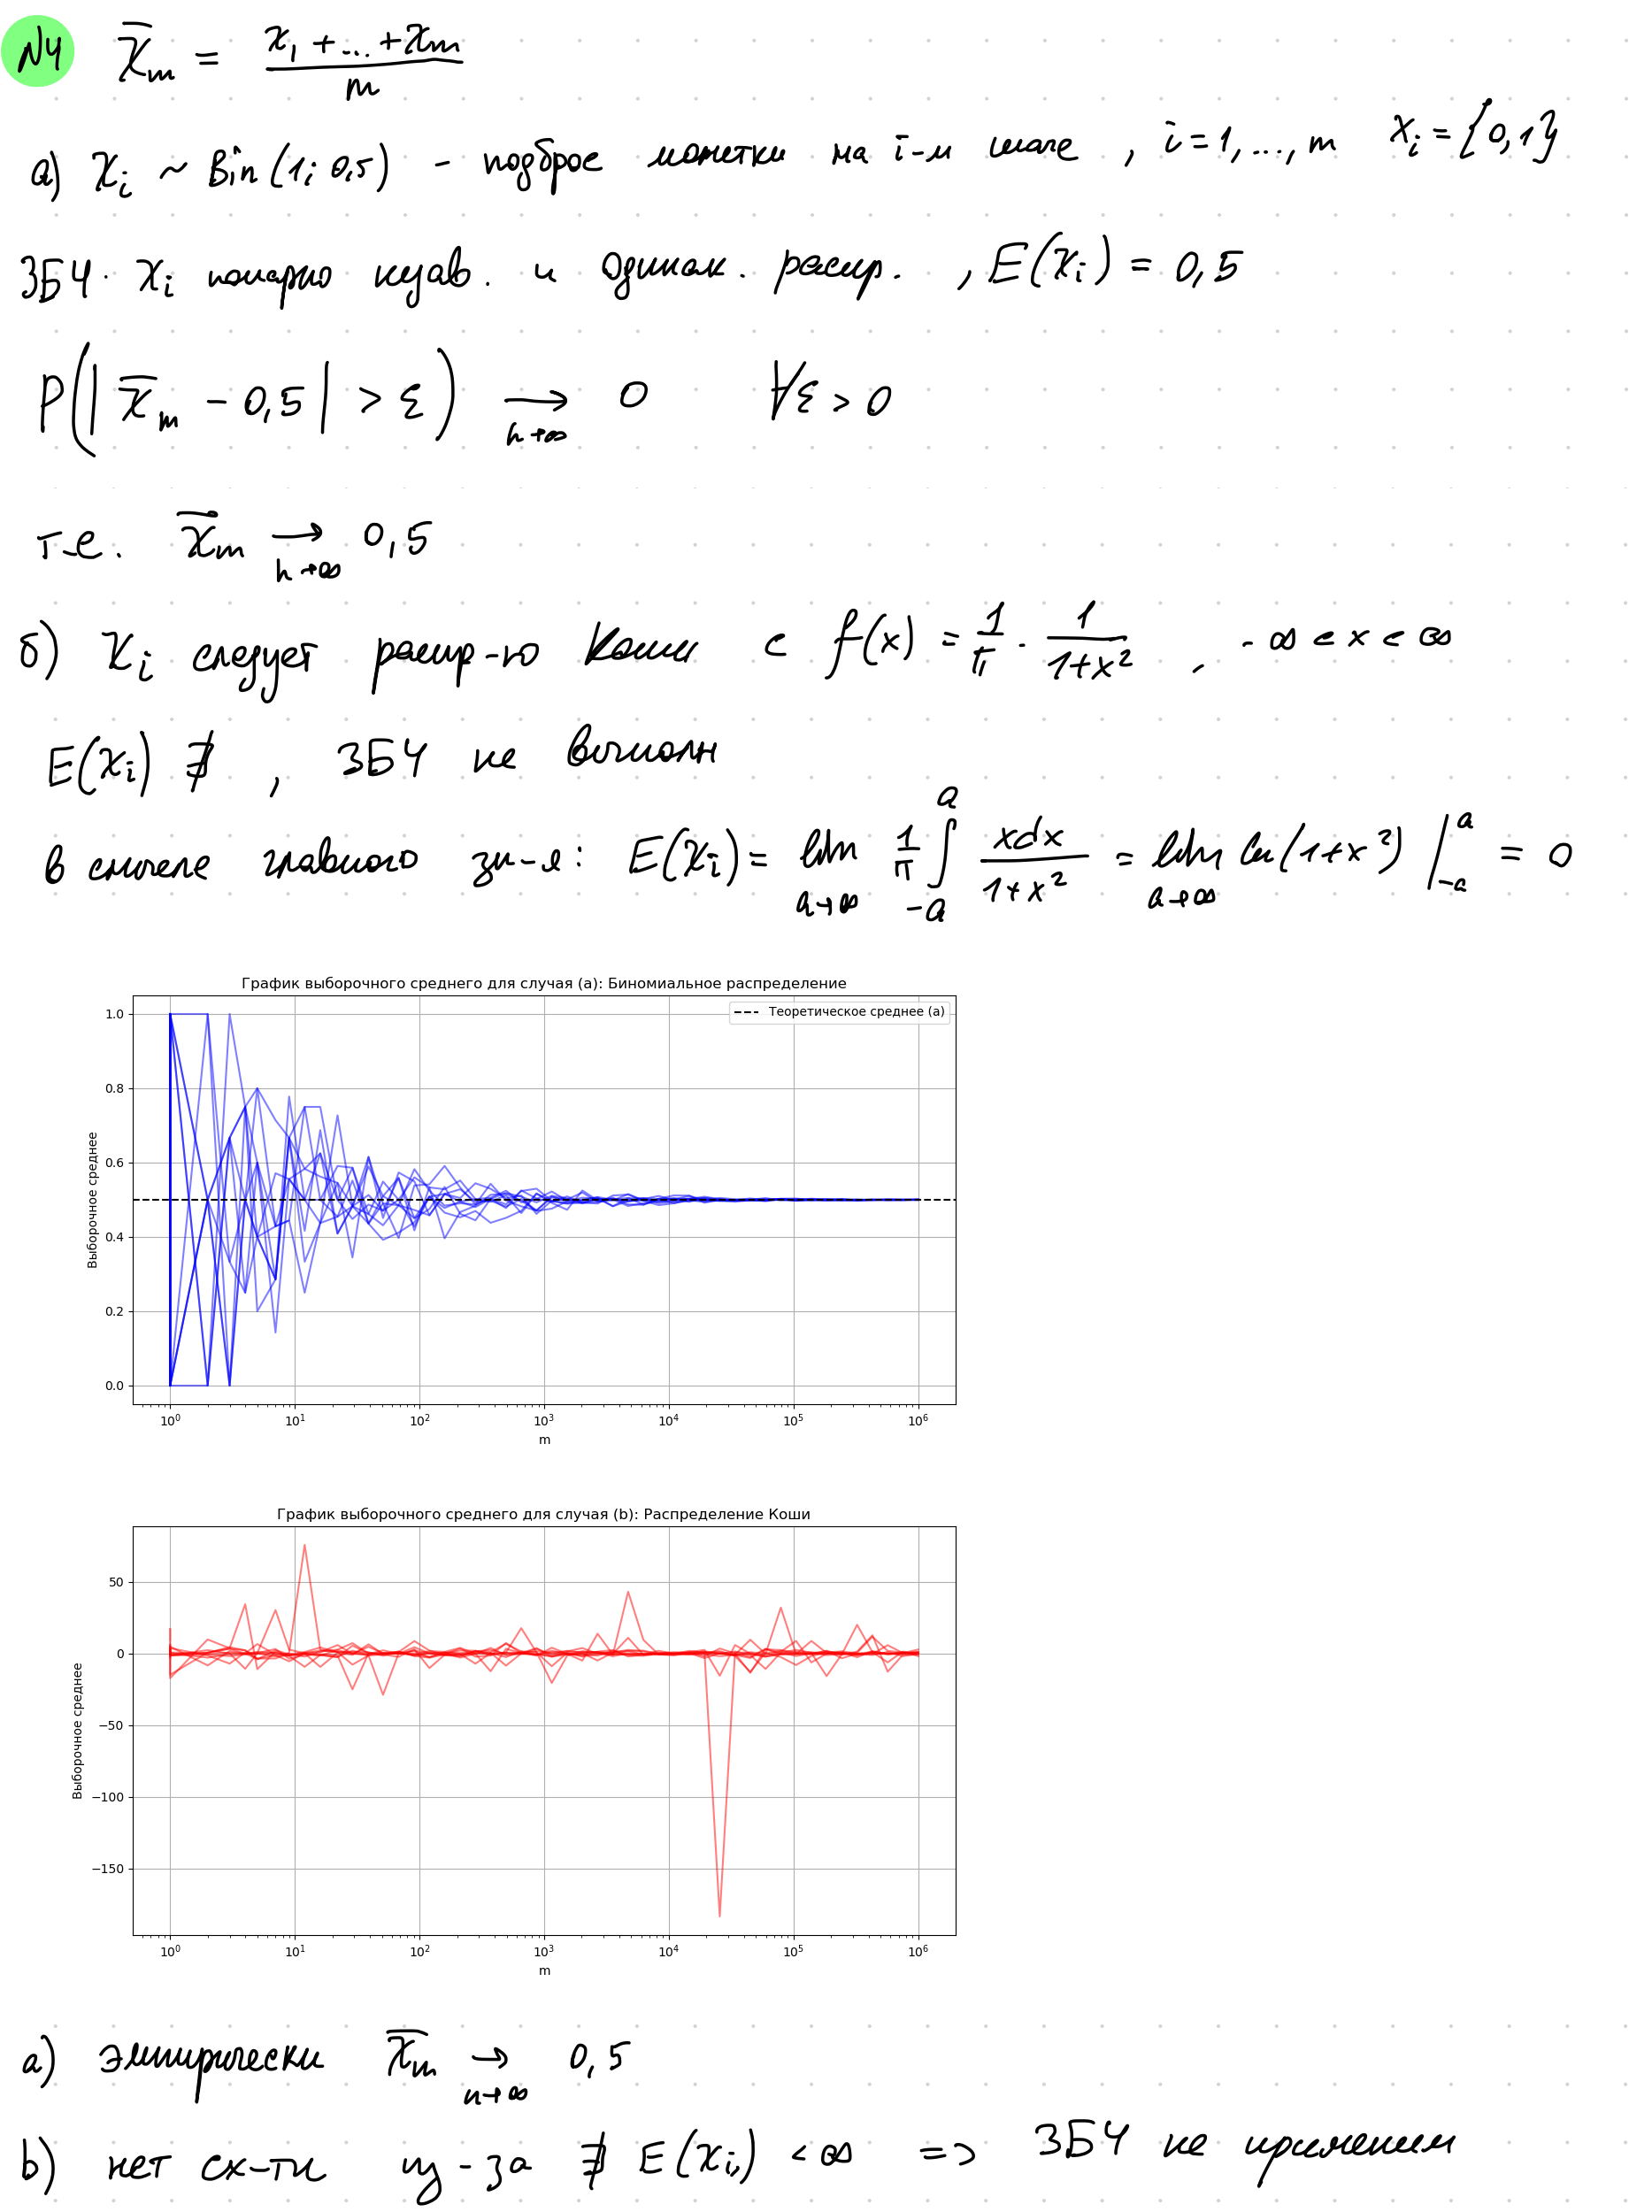 N4 X̄m = (x₁ + ... + xm) / m
а) Xi ~ Bin(1; 0,5) - подброс монетки на i-м шаге , i = 1, ..., m Xi = {0,1}
ЗБЧ. Xi попарно незав. и одинак. распр. , E(Xi) = 0,5
P(| X̄m - 0,5 | > ε) → 0 ∀ε > 0
n→∞
т.е. X̄m → 0,5
n→∞
б) Xi следует распр-ю Коши с f(x) = 1/π · 1/(1+x²) , -∞ < x < ∞
E(Xi) ∄ , ЗБЧ не выполн
в смысле главного зн-я: E(Xi) = lim 1/π ∫ xdx/(1+x²) = lim ln(1+x²) |ᵃ₋ₐ = 0
a→∞ -a a a→∞
График выборочного среднего для случая (a): Биномиальное распределение
Теоретическое среднее (a)
Выборочное среднее
1.0
0.8
0.6
0.4
0.2
0.0
10⁰ 10¹ 10² 10³ 10⁴ 10⁵ 10⁶
m
График выборочного среднего для случая (b): Распределение Коши
Выборочное среднее
50
0
−50
−100
−150
10⁰ 10¹ 10² 10³ 10⁴ 10⁵ 10⁶
m
a) эмпирически X̄m → 0,5
n→∞
b) нет сх-ти из-за ∄ E(Xi) < ∞ => ЗБЧ не применим